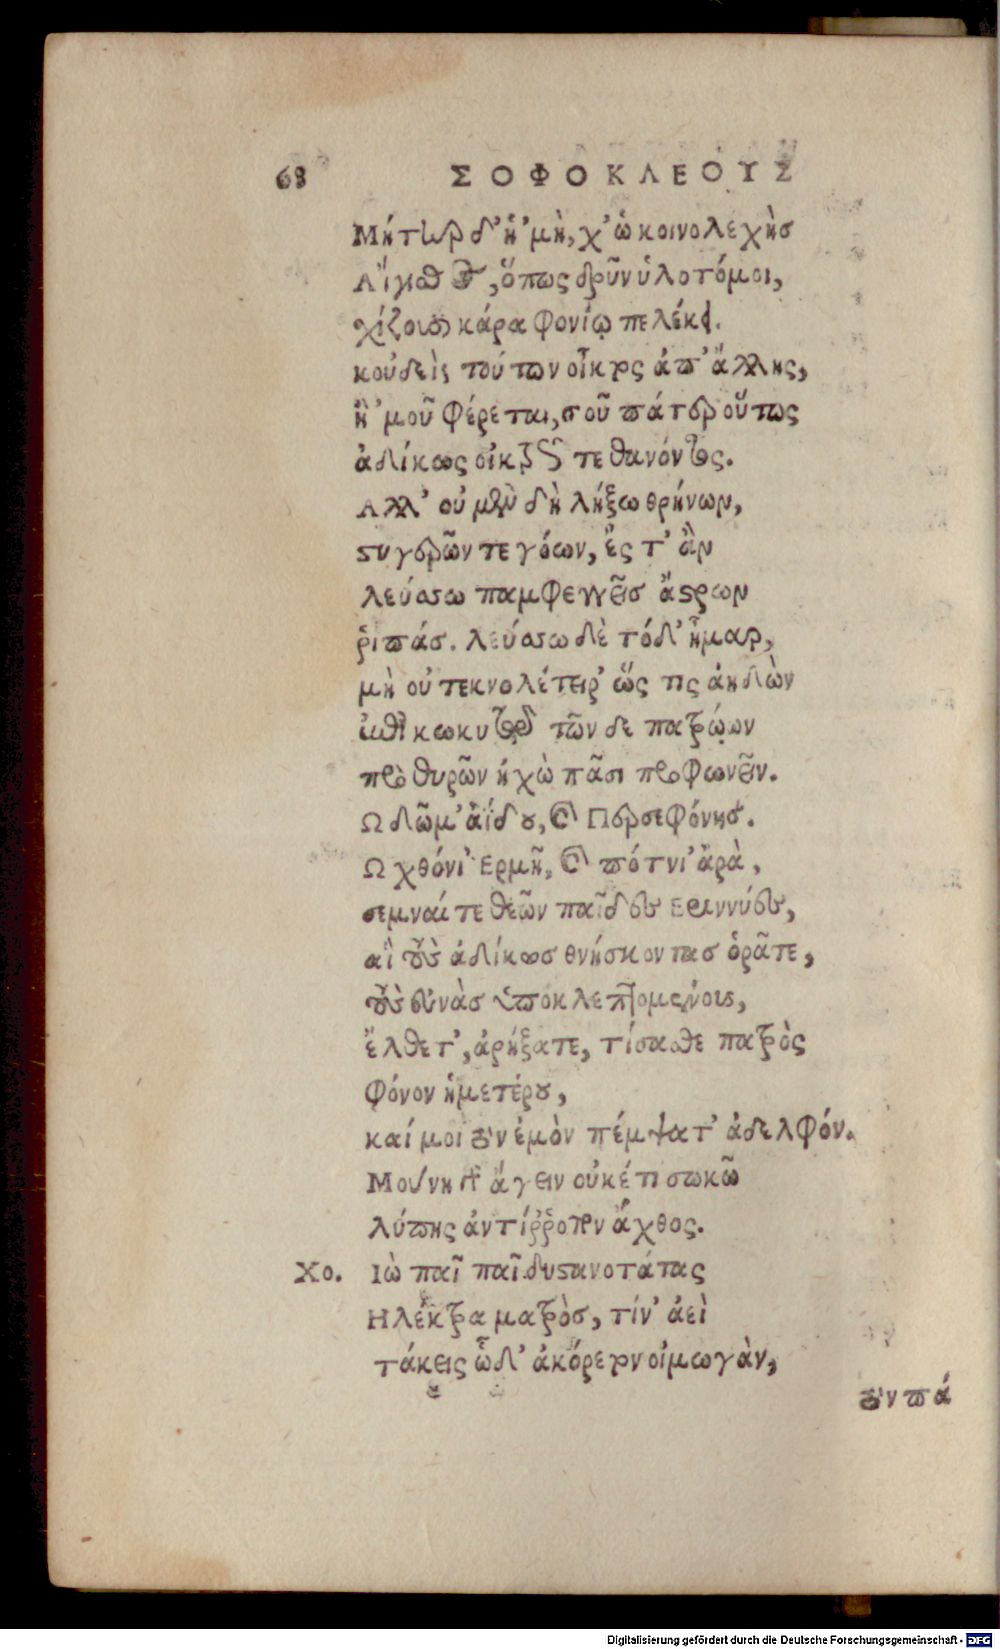 68 ΣΟΦΟΚΛΕΟΥΣ
Μήτηρ δ' ἡ 'μὴ, χ' ὡ κοινολεχὴσ
Αἴγισθος, ὅπως δρῦν ὑλοτόμοι,
χίζουσι κάρα φονίῳ πελέκει.
κοὐδεὶς τούτων οἶκτος ἀπ' ἄλλης,
ἢ 'μοῦ φέρεται, σοῦ πάτερ οὕτως
ἀδίκως οἰκτρῶς τε θανόντος.
Αλλ' οὐ μὲν δὴ λήξω θρήνων,
στυγερῶν τε γόων, ἔς τ' ἂν
λεύσσω παμφεγγεῖσ ἄστρων
ῥιπάσ. λεύσσω δὲ τόδ' ἦμαρ,
μὴ οὐ τεκνολέτειρ' ὥς τις ἀηδὼν
ἐπὶ κωκυτῷ τῶν δε πατρῴων
πρὸ θυρῶν ἠχὼ πᾶσι προφωνεῖν.
Ω δῶμ' ἀΐδου, καὶ Περσεφόνησ.
Ω χθόνι' Ερμῆ, καὶ πότνι' ἀρὰ,
σεμναί τε θεῶν παῖδες Εριννύες,
αἳ τοὺς ἀδίκωσ θνήσκοντασ ὁρᾶτε,
τοὺς εὐνὰσ ὑποκλεπτομένους,
ἔλθετ', ἀρήξατε, τίσασθε πατρὸς
φόνον ἡμετέρου,
καί μοι τὸν ἐμὸν πέμψατ' ἀδελφόν.
Μούνη γὰρ ἄγειν οὐκέτι σωκῶ
λύπης ἀντίῤῥοπον ἄχθος.
Χο. Ιὼ παῖ παῖ δυστανοτάτας
Ηλέκτρα ματρὸσ, τίν' ἀεὶ
τάκεις ὧδ' ἀκόρεστον οἰμωγὰν,
τὸν πά
Digitalisierung gefördert durch die Deutsche Forschungsgemeinschaft - DFG